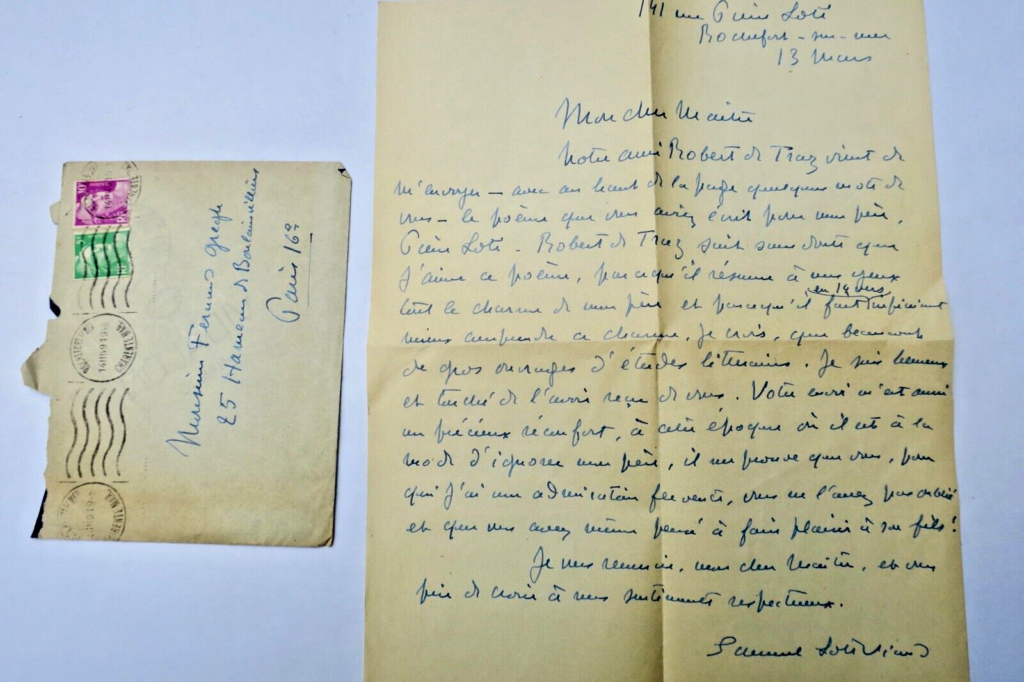 141 rue Pierre Loti
Rochefort-sur-mer
13 Mars
Mon cher Maître
Notre ami Robert de Traz vient de
m'envoyer – avec au haut de la page quelques mots de
vous – le poème que vous aviez écrit pour mon père,
Pierre Loti. Robert de Traz sait sans doute que
j'aime ce poème, parce qu'il résume à mes yeux
tout le charme de mon père et parce qu'il fait infiniment
en 14 vers
mieux comprendre ce charme, je crois, que beaucoup
de gros ouvrages d'études littéraires. Je suis heureux
et touché de l'avoir reçu de vous. Votre envoi m'est aussi
un précieux réconfort, à cette époque où il est à la
mode d'ignorer mon père, il me prouve que vous, pour
qui j'ai une admiration fervente, vous ne l'avez pas oublié
et que vous avez même pensé à faire plaisir à son fils!
Je vous remercie, mon cher Maître, et vous
prie de croire à mes sentiments respectueux.
Samuel Loti Viaud
Monsieur Fernand Gregh
25 Hameau de Boulainvilliers
Paris 16e